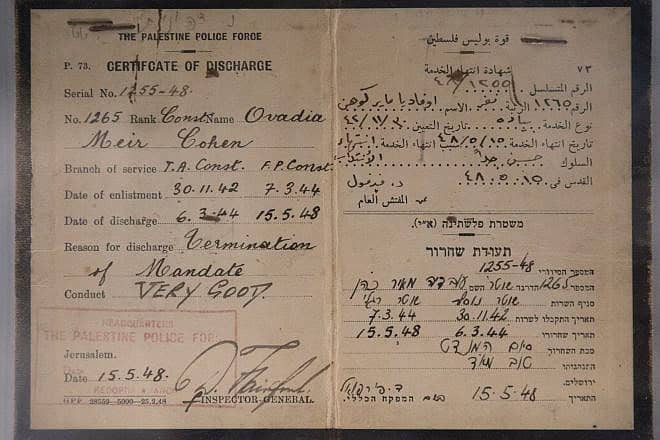 THE PALESTINE POLICE FORCE
P. 73. CERTIFCATE OF DISCHARGE
Serial No. 1255-48.
No. 1265 Rank Const. Name Ovadia
Meir Cohen
Branch of service T.A. Const. F.P. Const.
Date of enlistment 30.11.42 7.3.44
Date of discharge 6.3.44 15.5.48
Reason for discharge Termination
of Mandate
Conduct VERY GOOD.
HEADQUARTERS
THE PALESTINE POLICE FOR
Jerusalem.
Date 15.5.48.
INSPECTOR-GENERAL.
GPP 28559-5000-25.2.48
قوة بوليس فلسطين
٧٣ شهادة انتهاء الخدمة
الرقم المتسلسل ١٢٥٥/٤٨
الرقم ١٢٦٥ الرتبة نفر الاسم اوفاديا ماير كوهين
نوع الخدمة
تاريخ التعيين ٤٢/١١/٣٠
تاريخ انتهاء الخدمة ٤٨/٥/١٥ سبب انتهاء الخدمة
السلوك حسن جدا
القدس في ٤٨/٥/١٥
المفتش العام
משטרת פלשתינה (א״י).
תעודת שחרור
המספר הסידורי 1255-48
המספר 1265 הדרגה שוטר השם עובדיה מאיר כהן
סניף השרות שוטר נוסף שוטר רגלי
תאריך התקבלו לשרות 30.11.42 7.3.44
תאריך שחרורו 6.3.44 15.5.48
סבת השחרור סיום המנדט
התנהגותו טוב מאד
ירושלים.
התאריך 15.5.48 המפקח הכללי.